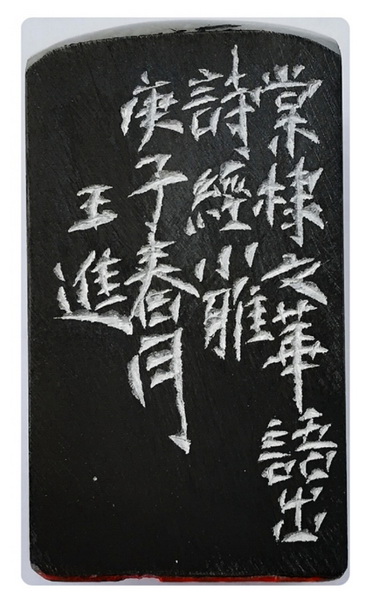 棠棣之華語出
詩經小雅
庚子春月
王進